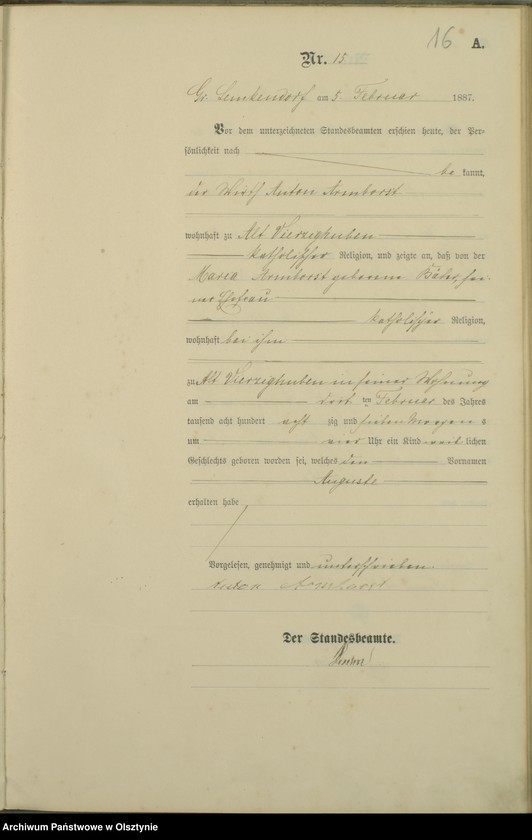 16 A.
Nr. 15
Gr. Lemkendorf am 5. Februar 1887.
Vor dem unterzeichneten Standesbeamten erschien heute, der Per-
sönlichkeit nach
be kannt,
der Wirth Anton Armborst
wohnhaft zu Alt Vierzighuben
katholischer Religion, und zeigte an, daß von der
Maria Armborst geborene sei-
ner Ehefrau
katholischer Religion,
wohnhaft bei ihm
zu Alt Vierzighuben in seiner Wohnung
am ten Februar des Jahres
tausend acht hundert acht zig und sieben Morgens
um vier Uhr ein Kind weib lichen
Geschlechts geboren worden sei, welches den Vornamen
Auguste
erhalten habe
Vorgelesen, genehmigt und unterschrieben.
Anton Armborst
Der Standesbeamte.
Archiwum Państwowe w Olsztynie